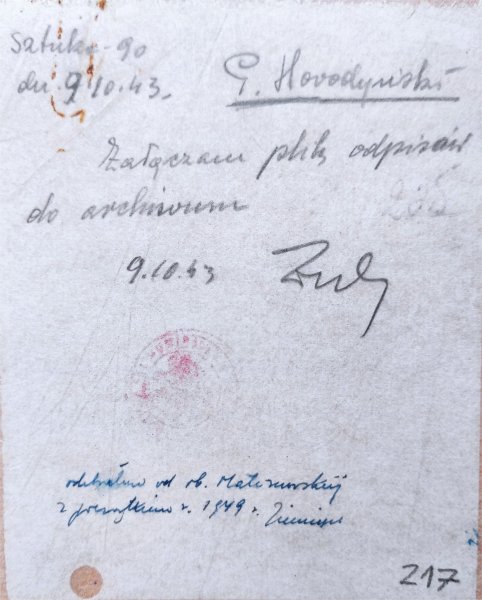 Sztuka-90
dn. 9.10.43.
P. Horodyński
Załączam plik odpisów
do archiwum
9.10.43
odebrałem od ob. Matiszewskiej
z początkiem r. 1949 r.
217